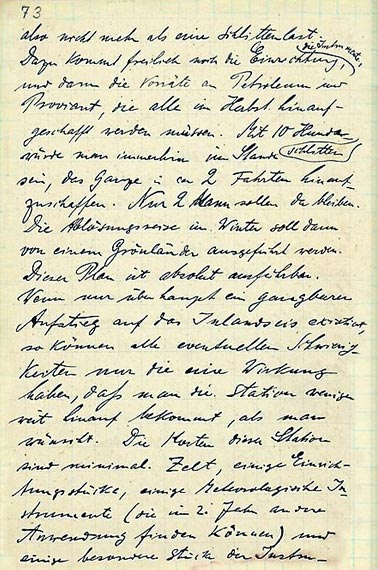 73
also nicht mehr als eine Schlittenlast.
Dazu kommt freilich noch die Einrichtung, die Instrumente,
und dann die Vorräte an Petroleum und
Proviant, die alle im Herbst hinauf-
geschafft werden müssen. Mit 10 Hunden
würde man immerhin im Stande schlitten
sein, das Ganze in ca 2 Fahrten hinauf-
zuschaffen. Nur 2 Mann sollen da bleiben.
Die Ablösungsreise im Winter soll dann
von einem Grönländer ausgeführt werden.
Dieser Plan ist absolut ausführbar.
Wenn nur überhaupt ein gangbarer
Aufstieg auf das Inlandseis existiert,
so können alle eventuellen Schwierig-
keiten nur die eine Wirkung
haben, daß man die Station weniger
weit hinauf bekommt, als man
wünscht. Die Kosten dieser Station
sind minimal. Zelt, einige Einrich-
tungsstücke, einige Meteorologische In-
strumente (die im 2. Jahr andere
Anwendung finden können) und
einige besondere Stücke der Instru-